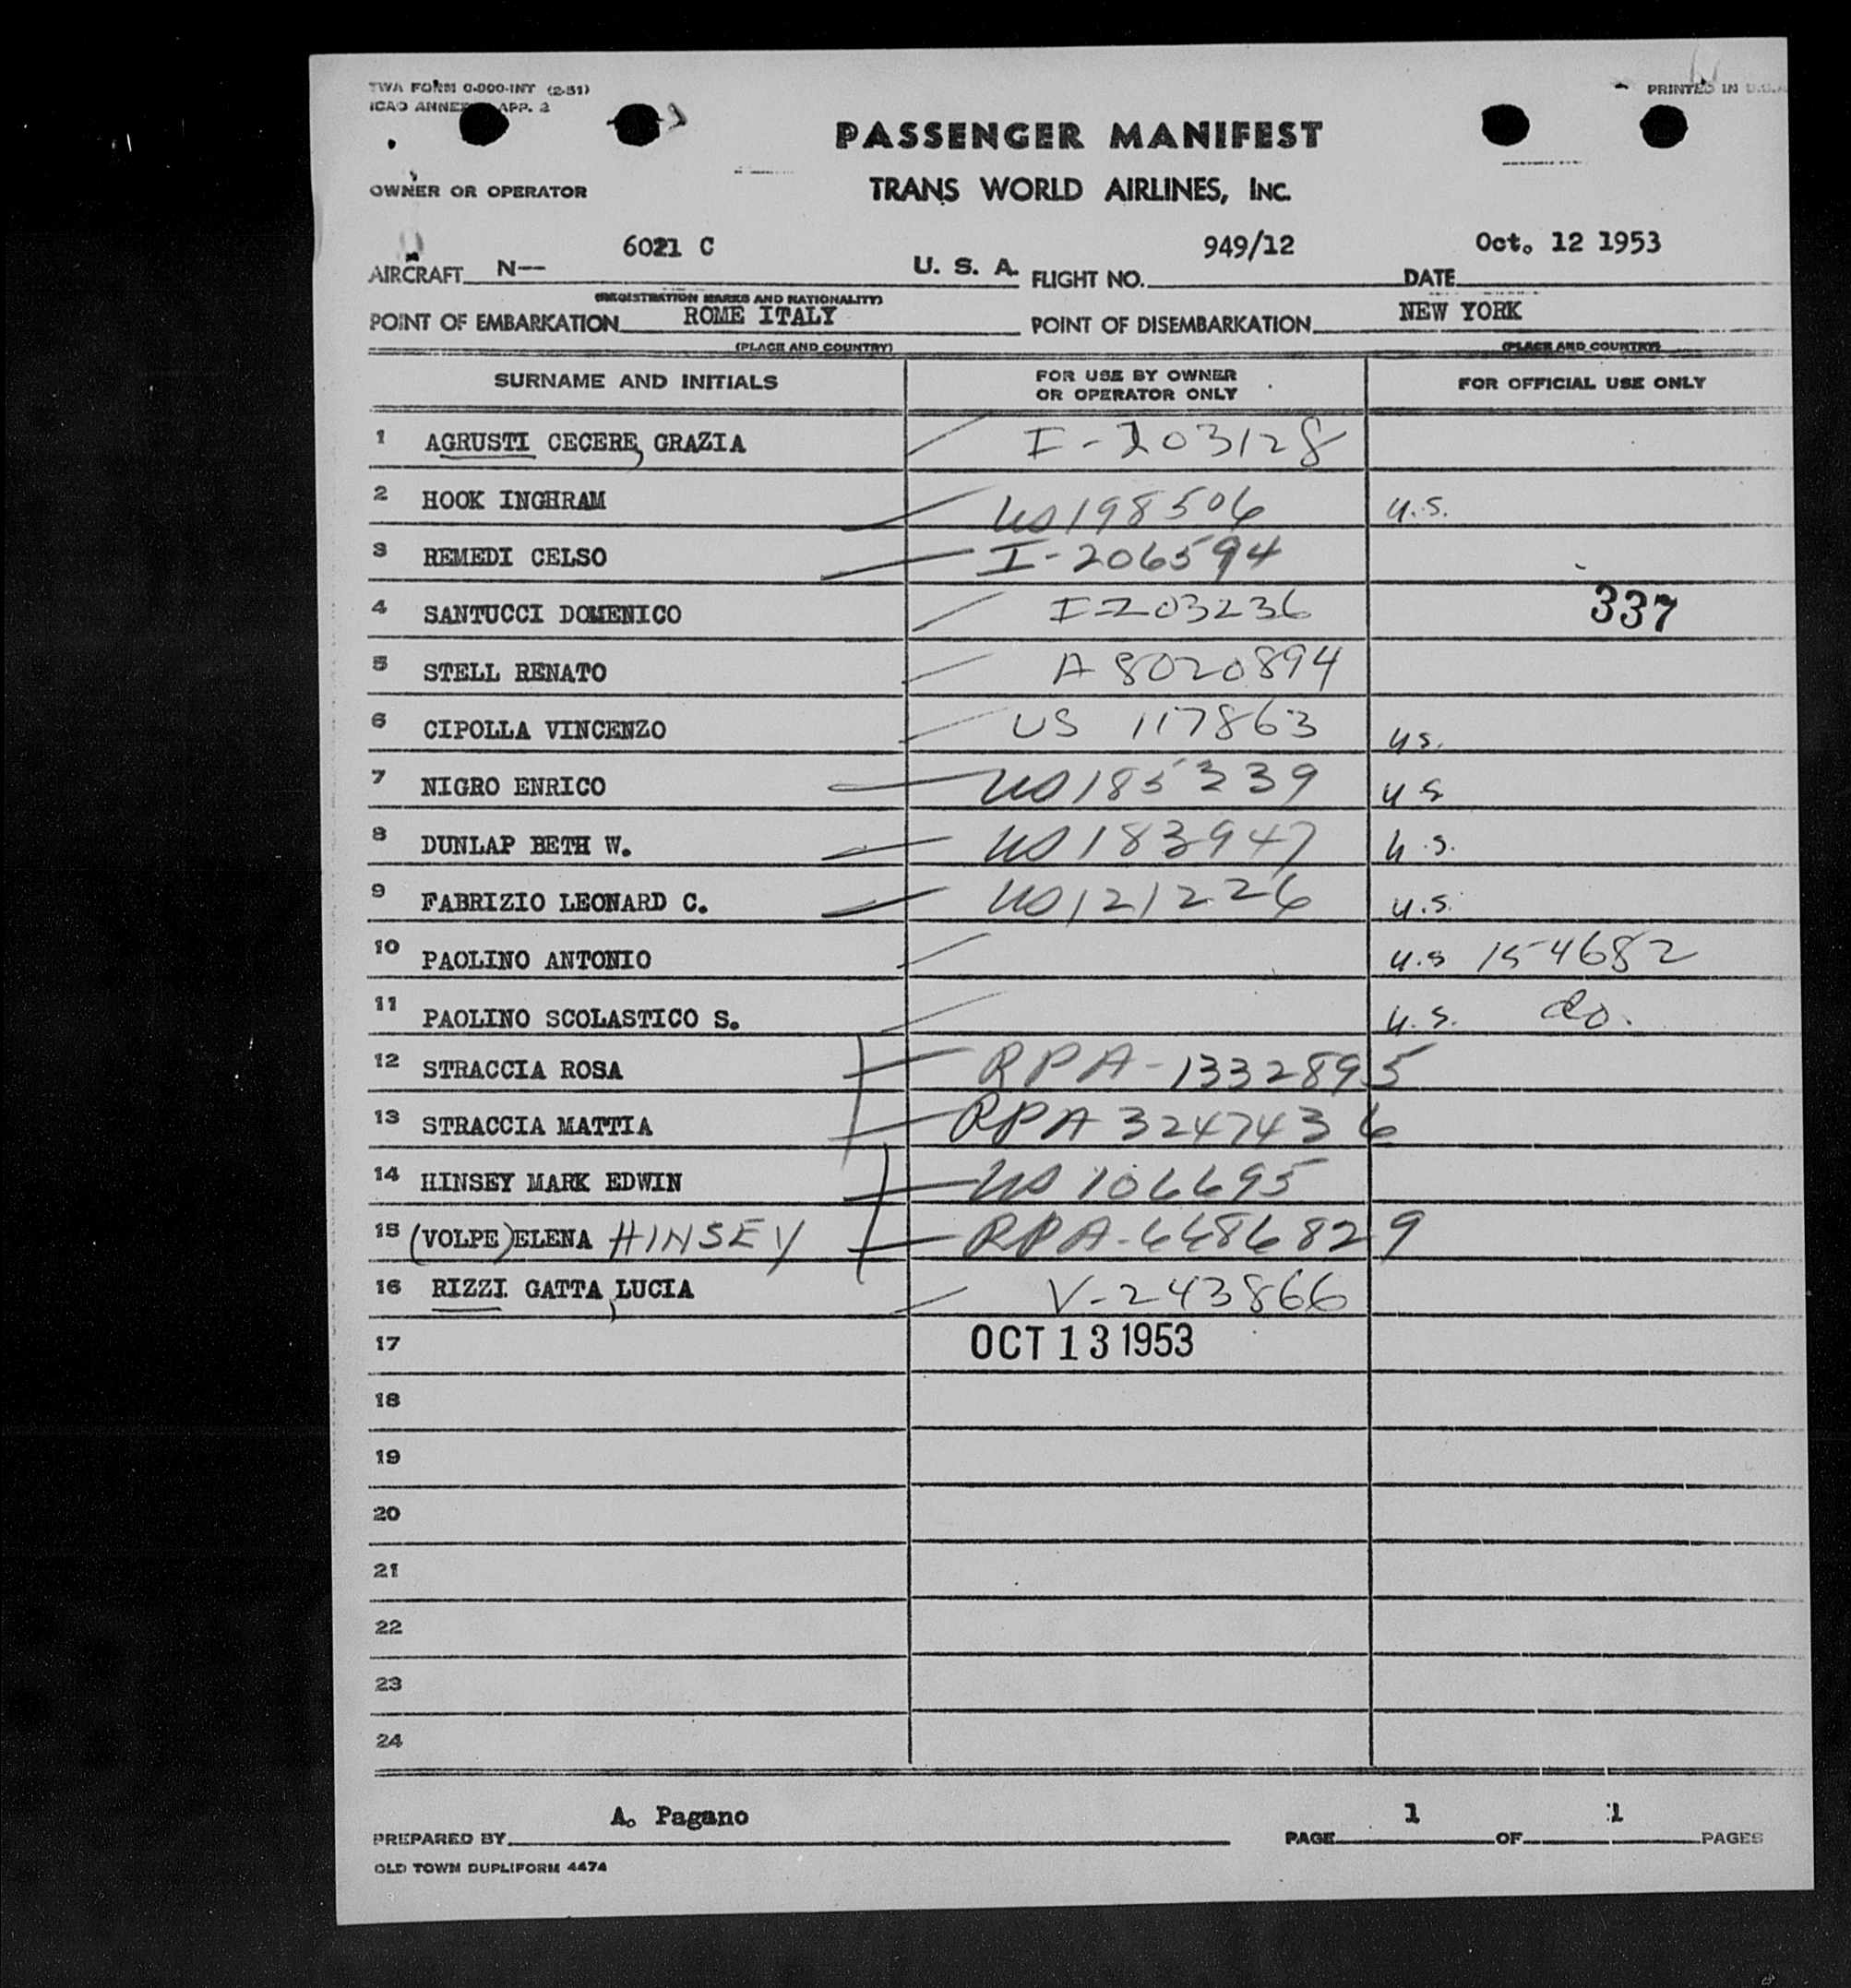 TWA FORM O-000-INT (2-51)
PRINTED IN U.S.A.
ICAO ANNEX APP. 2
PASSENGER MANIFEST
OWNER OR OPERATOR
TRANS WORLD AIRLINES, INC.
AIRCRAFT N-- 6021 C U. S. A. FLIGHT NO. 949/12 DATE Oct. 12 1953
(REGISTRATION MARKS AND NATIONALITY)
POINT OF EMBARKATION ROME ITALY POINT OF DISEMBARKATION NEW YORK
(PLACE AND COUNTRY) (PLACE AND COUNTRY)
SURNAME AND INITIALS FOR USE BY OWNER OR OPERATOR ONLY FOR OFFICIAL USE ONLY
1 AGRUSTI CECERE, GRAZIA I-203128
2 HOOK INGHRAM US198506 U.S.
3 REMEDI CELSO I-206594
4 SANTUCCI DOMENICO I-203236 337
5 STELL RENATO A 8020894
6 CIPOLLA VINCENZO US 117863 US.
7 NIGRO ENRICO US185339 US
8 DUNLAP BETH W. US183947 U.S.
9 FABRIZIO LEONARD C. US121226 U.S.
10 PAOLINO ANTONIO U.S 154682
11 PAOLINO SCOLASTICO S. U.S. do.
12 STRACCIA ROSA RPA-1332895
13 STRACCIA MATTIA RPA 3247436
14 HINSEY MARK EDWIN US 106695
15 (VOLPE) ELENA HINSEY RPA-6686829
16 RIZZI GATTA, LUCIA V-243866
17 OCT 13 1953
18
19
20
21
22
23
24
PREPARED BY A. Pagano PAGE 1 OF 1 PAGES
OLD TOWN DUPLIFORM 4474